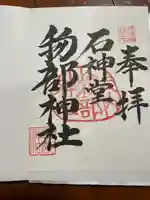 奉拝
石神堂
物部神社